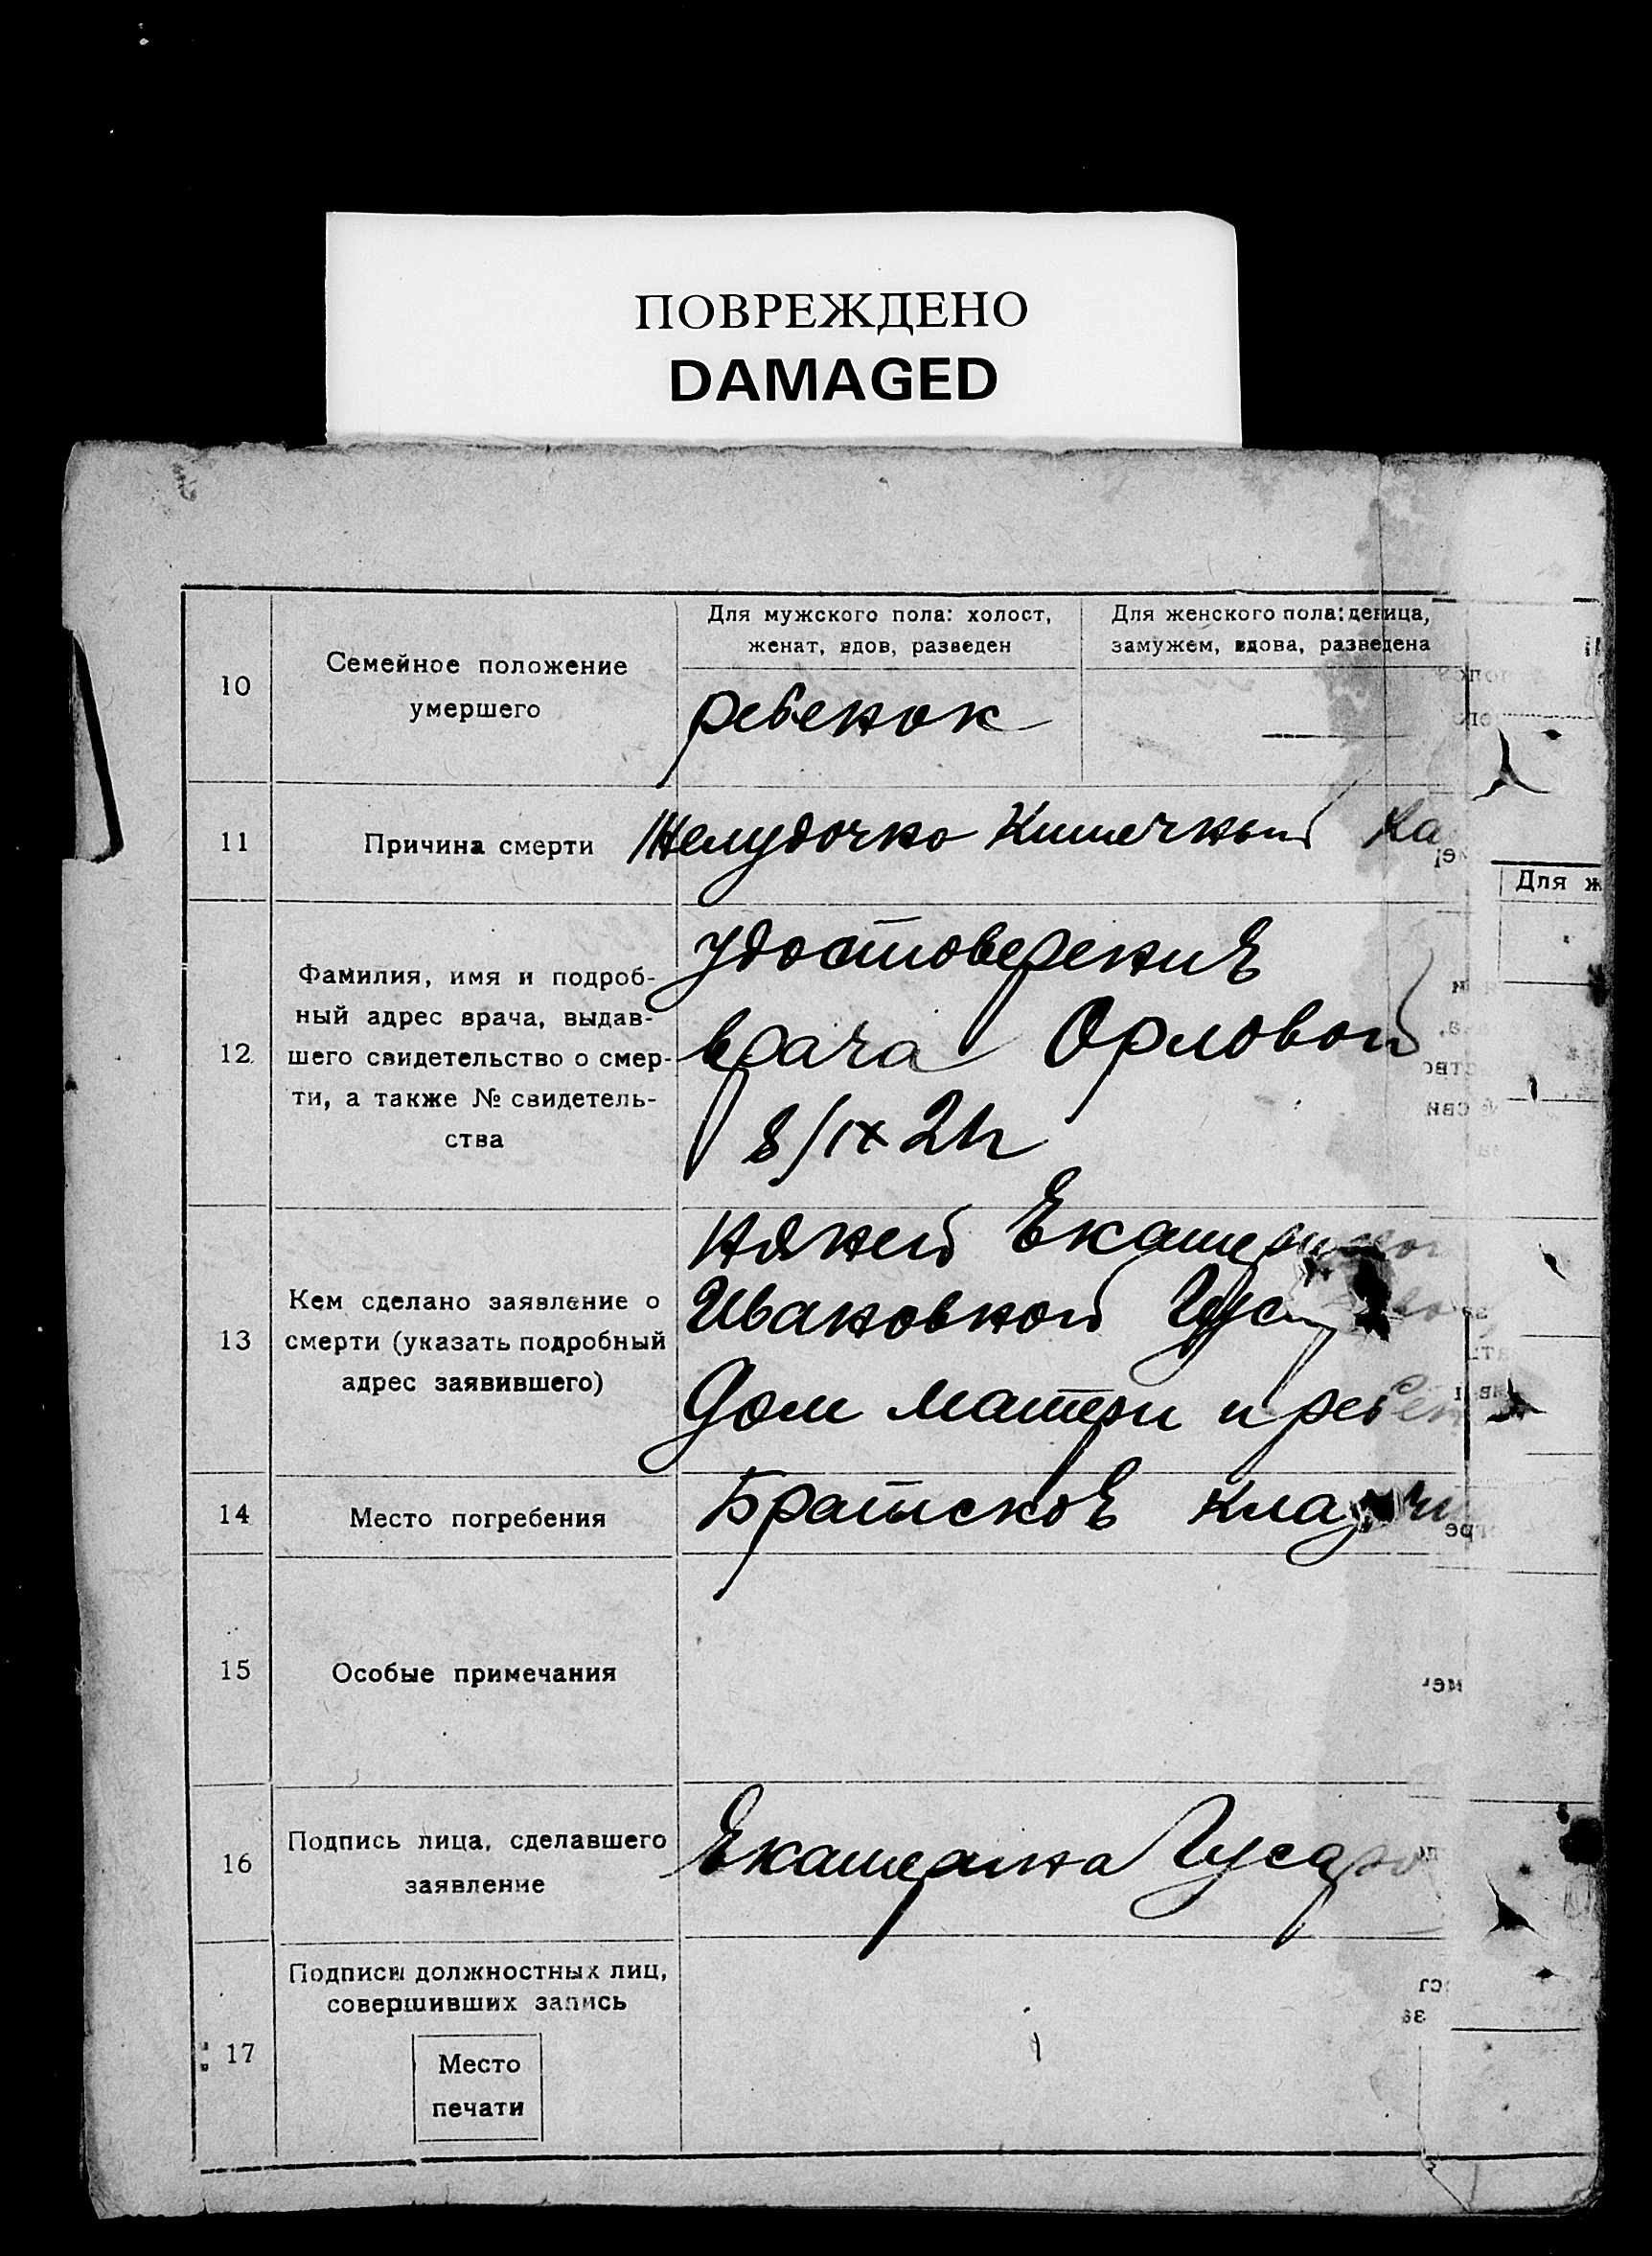 ПОВРЕЖДЕНО
DAMAGED
Для мужского пола: холост,
женат, вдов, разведен
Для женского пола: девица,
замужем, вдова, разведена
10
Семейное положение
умершего
ребенок
11
Причина смерти
Желудочно Кишечный Ка
12
Фамилия, имя и подроб-
ный адрес врача, выдав-
шего свидетельство о смер-
ти, а также № свидетель-
ства
удостоверение
врача Орловой
8/IX 24
13
Кем сделано заявление о
смерти (указать подробный
адрес заявившего)
няней Екатериной
Ивановной
Дом матери и ребен
14
Место погребения
Братское
15
Особые примечания
16
Подпись лица, сделавшего
заявление
Екатерина Гусаро
17
Подписи должностных лиц,
совершивших запись
Место
печати
Для ж